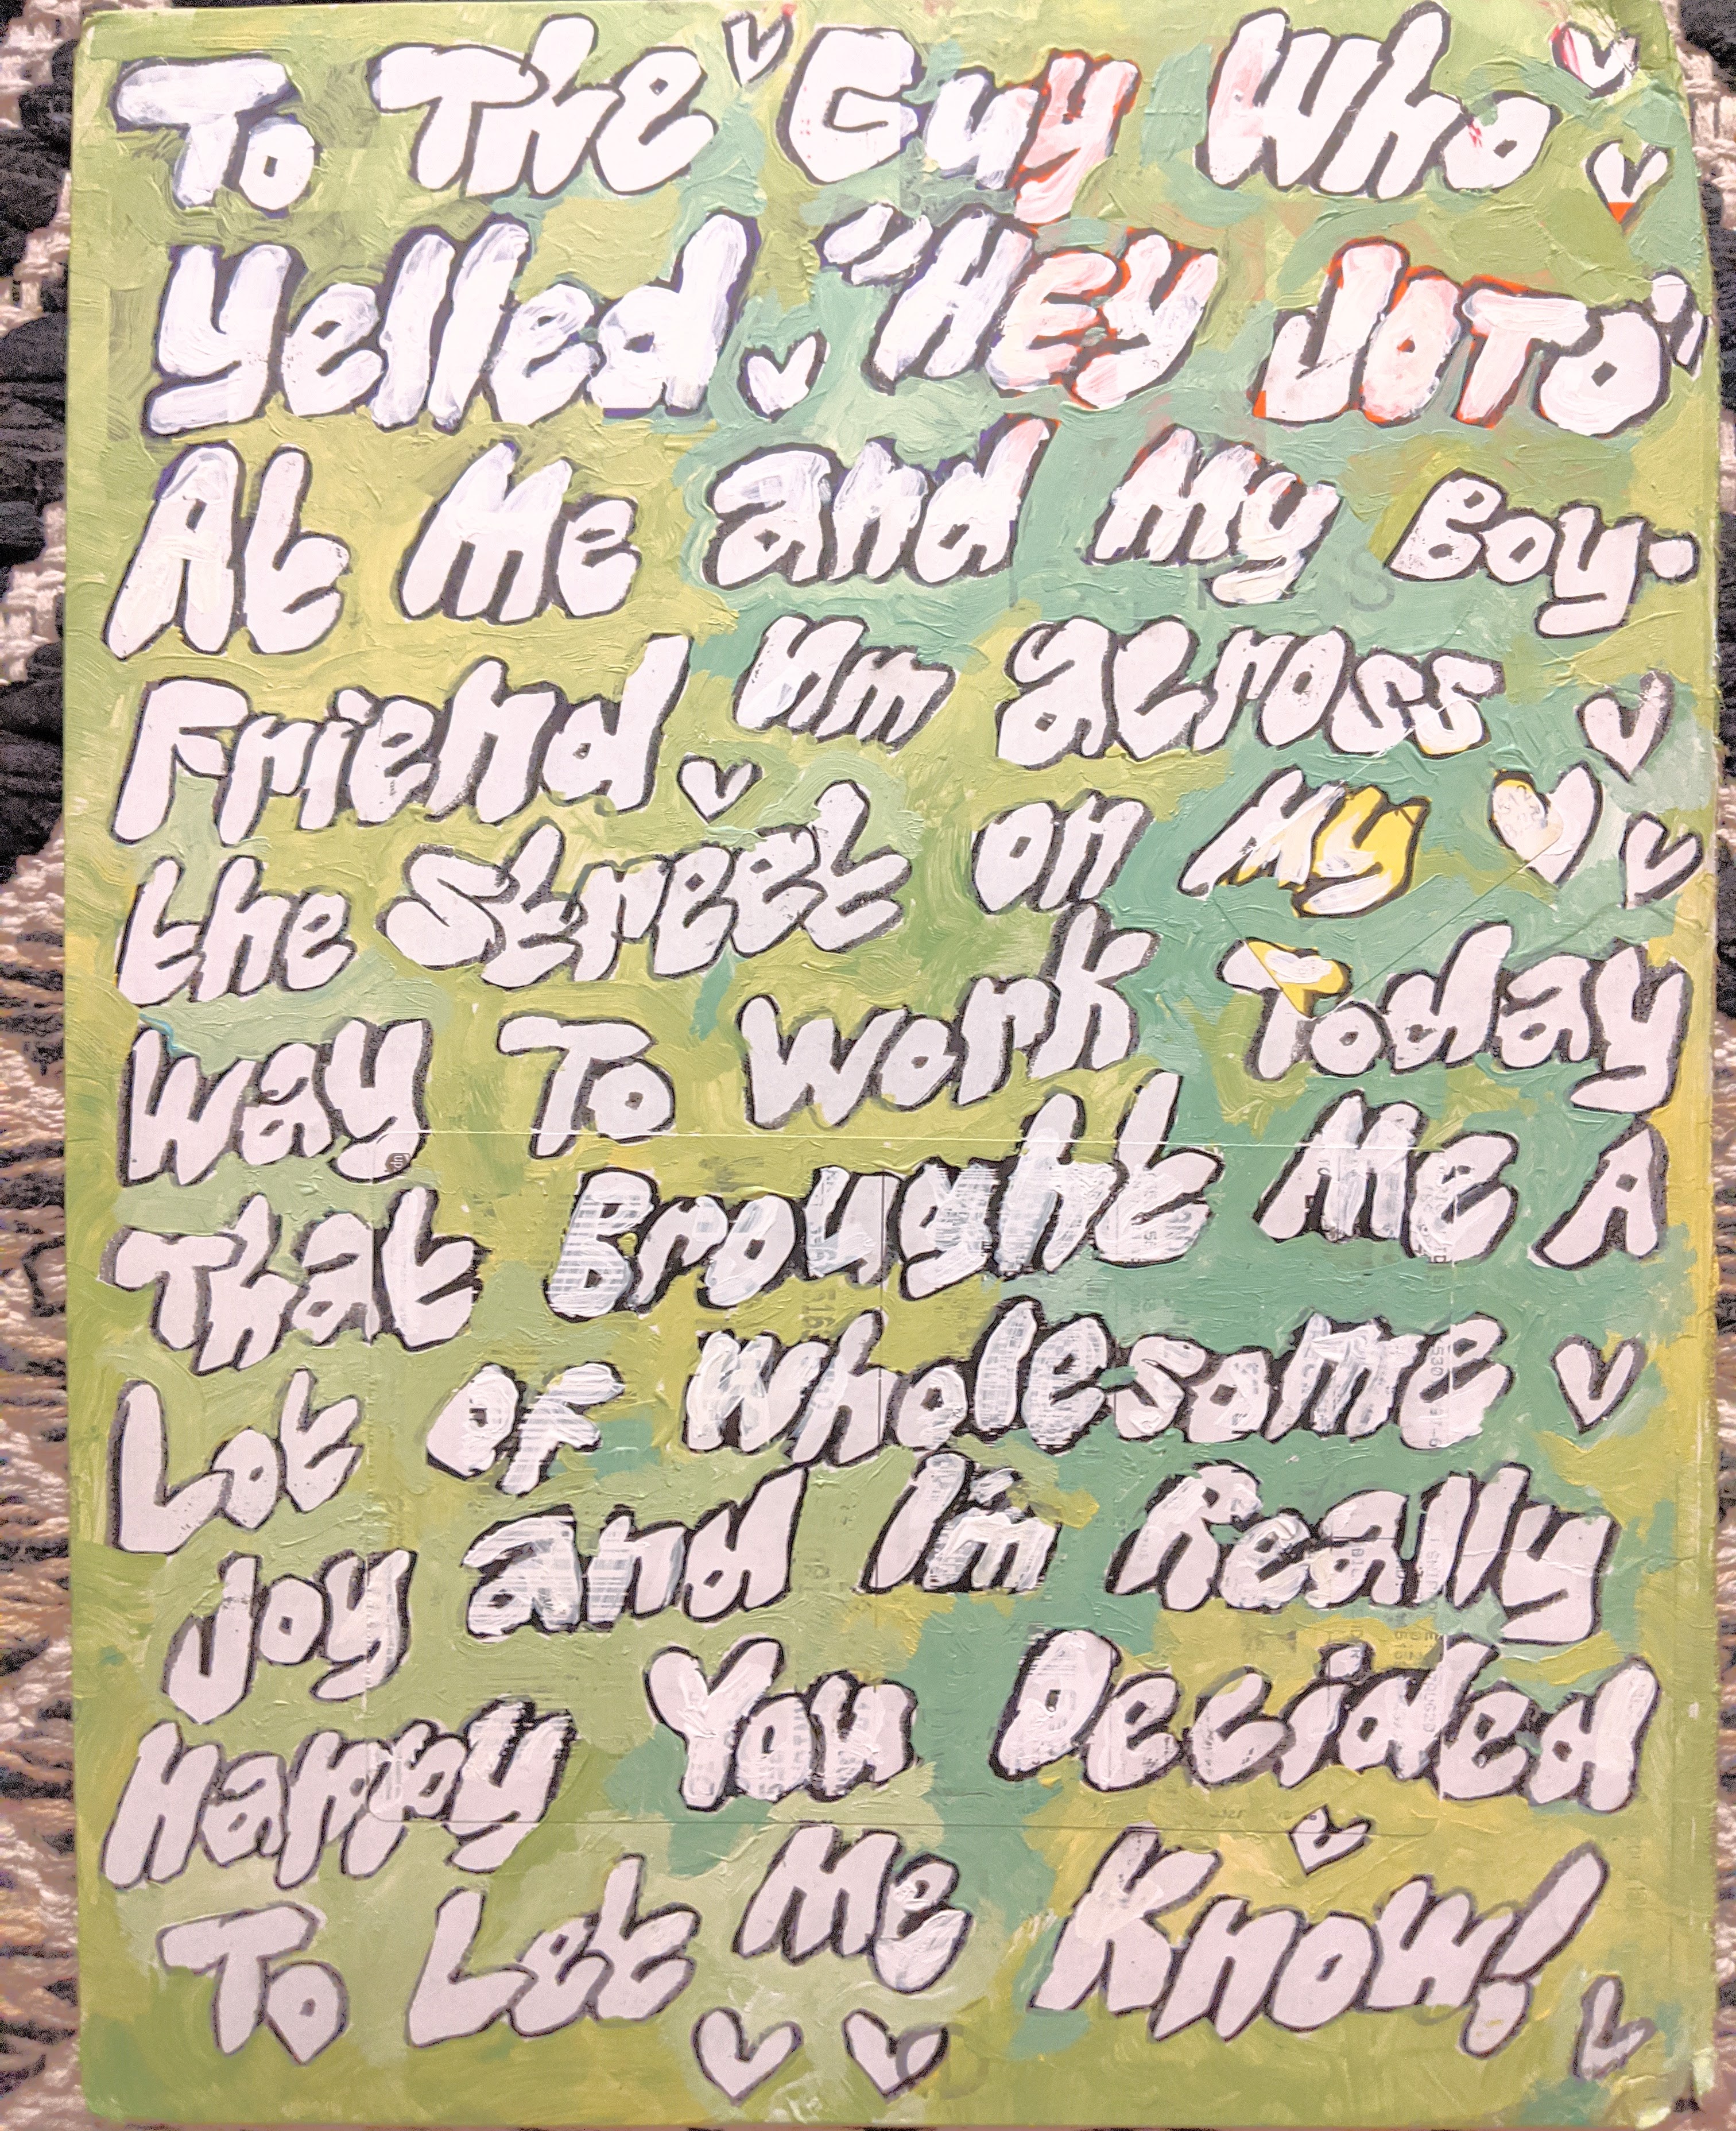 To The Guy Who
Yelled "HEY JOTO"
At Me and My Boy-
Friend Nm across
the Street on My
Way To Work Today
That Brought Me A
Lot OF Wholesome
Joy and I'm Really
Happy You Decided
To Let Me Know!